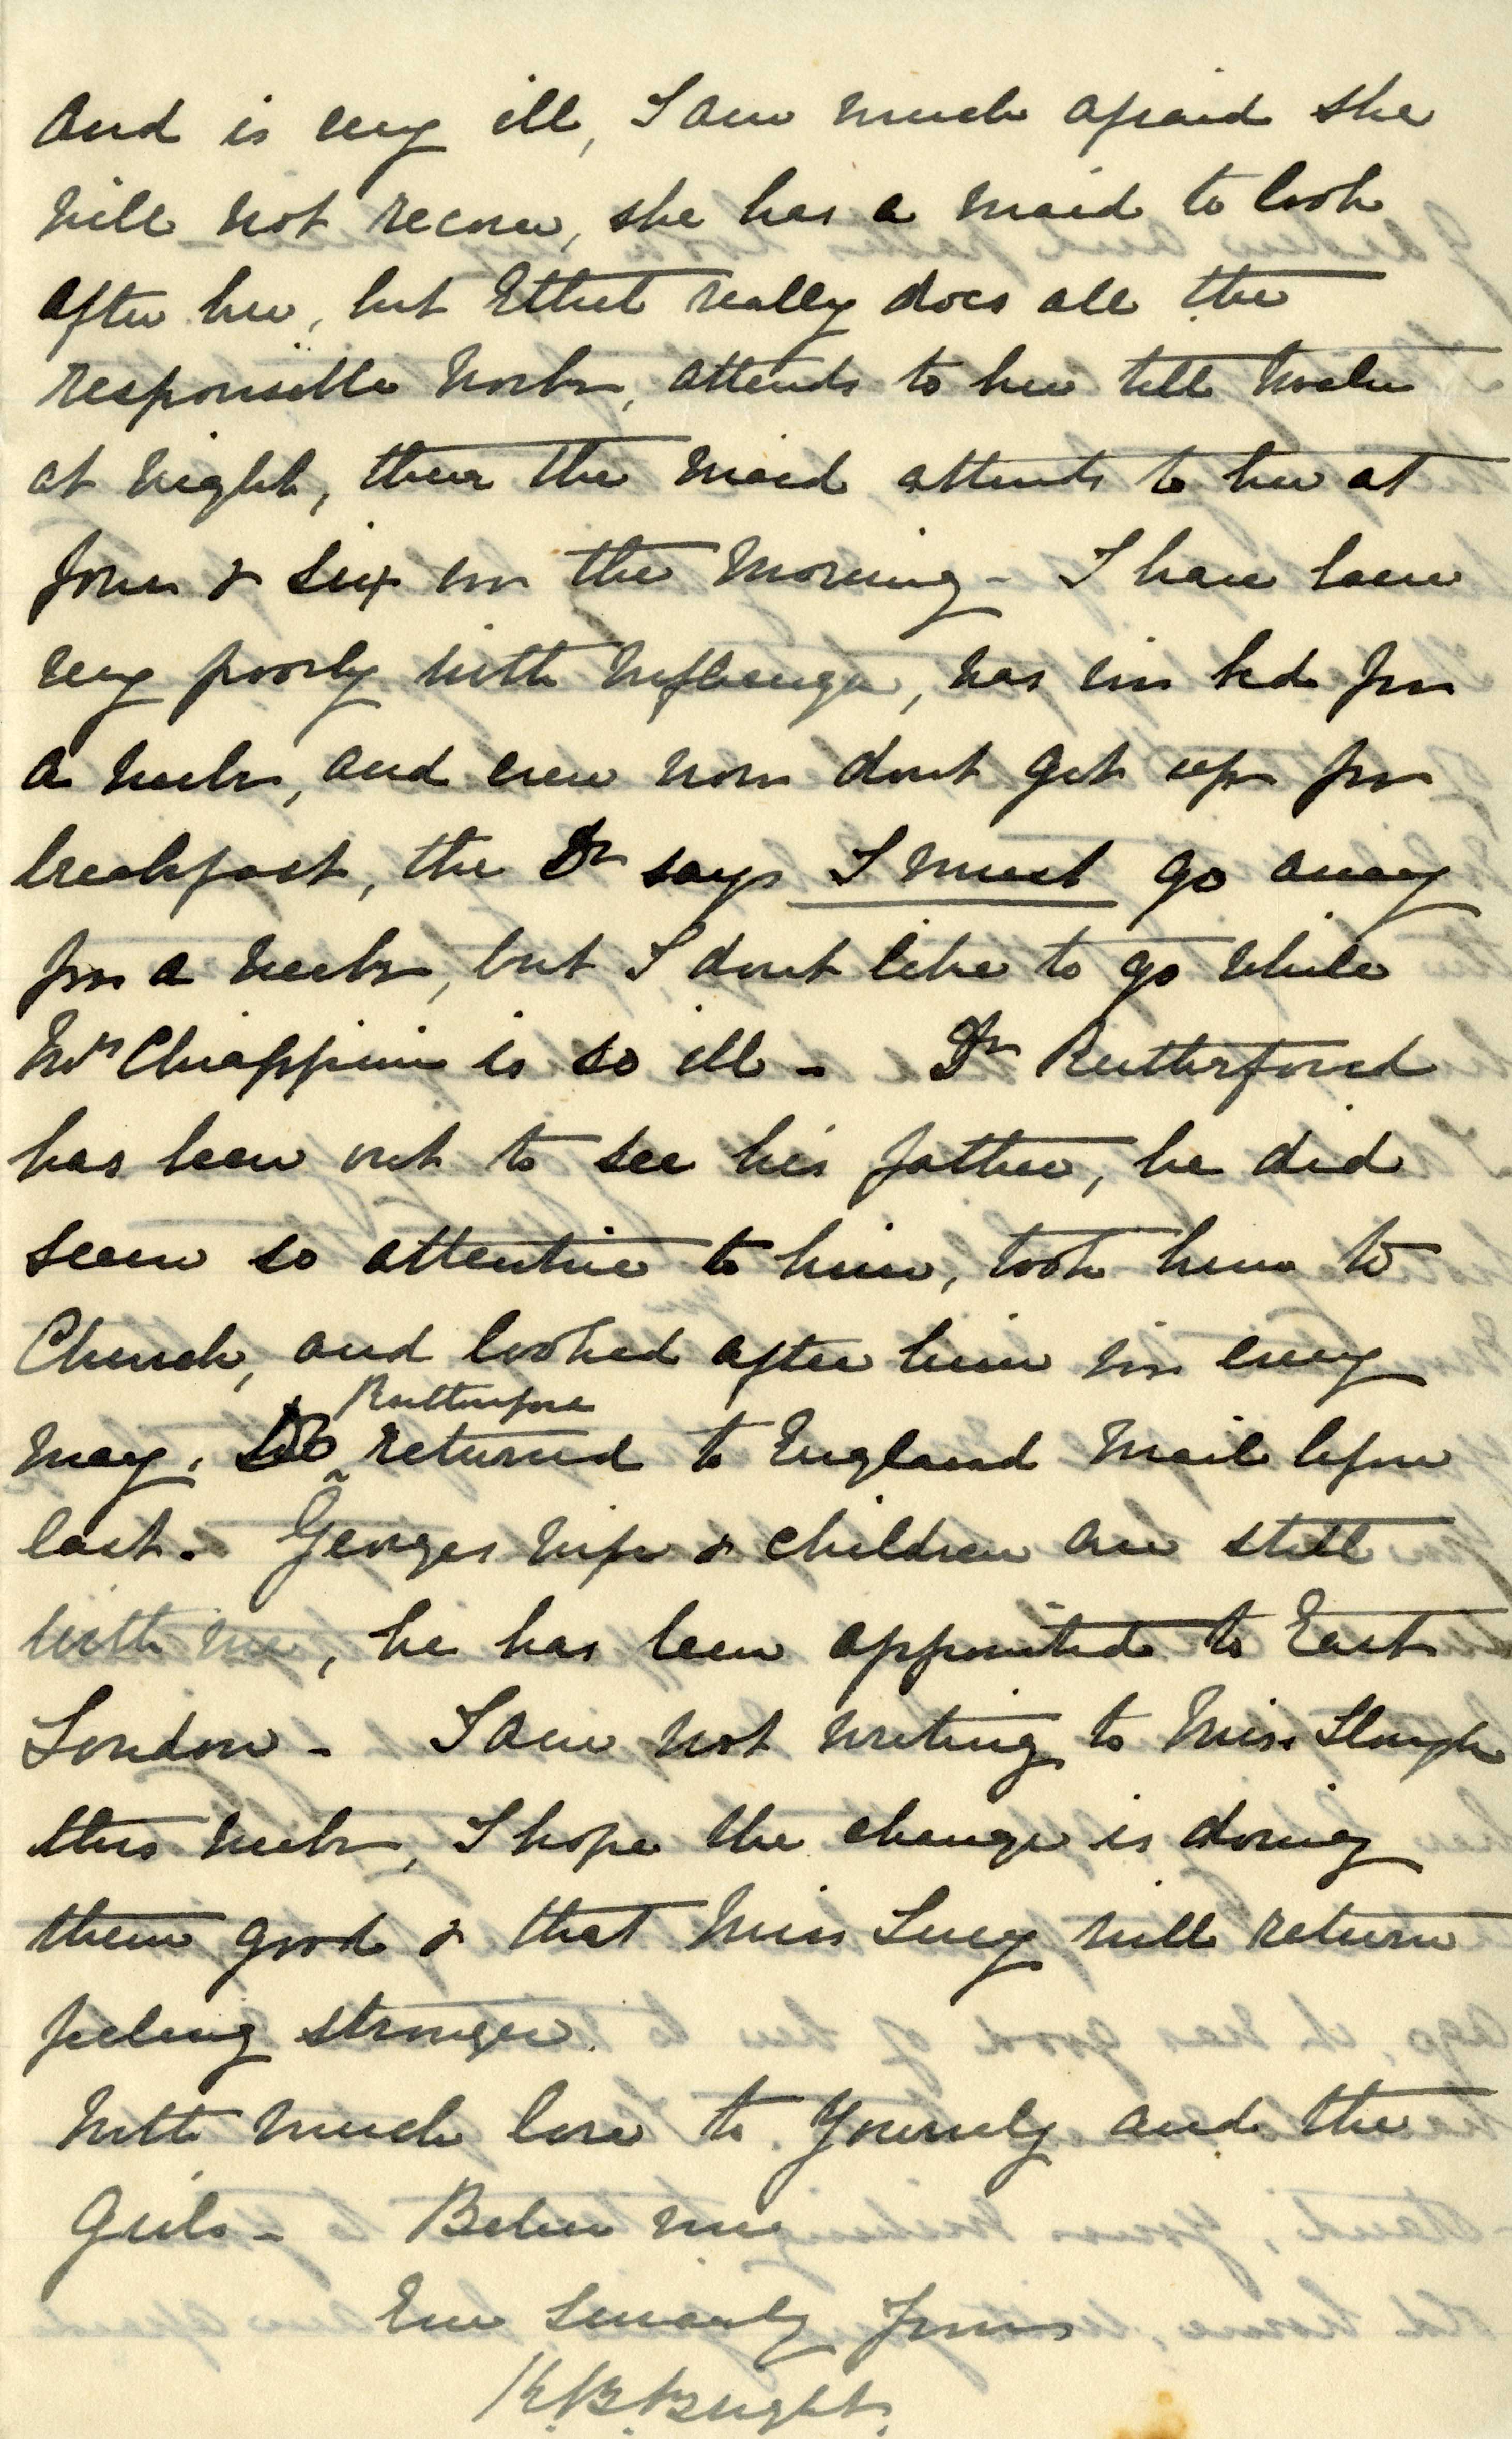 and is very ill, I am much afraid she
will not recover, she has a maid to look
after her, but Ethel really does all the
responsible work, attends to her till twelve
at night, then the maid attends to her at
four & six in the morning - I have been
very poorly with Influenza, was in bed for
a week, and even now dont get up for
breakfast, the Dr says I must go away
for a week, but I dont like to go while
Mrs Chiappini is so ill - Dr Rutherford
has been out to see his father, he did
seem so attentive to him, took him to
Church, and looked after him in every
way. Dr Rutherford returned to England mail before
last. Georges wife & children are still
with me, he has been appointed to East
London - I am not writing to Miss
this week, I hope the change is doing
them good & that Miss Lucy will return
feeling stronger.
With much love to yourself and the
Girls - Believe me
Ever Sincerely Yours